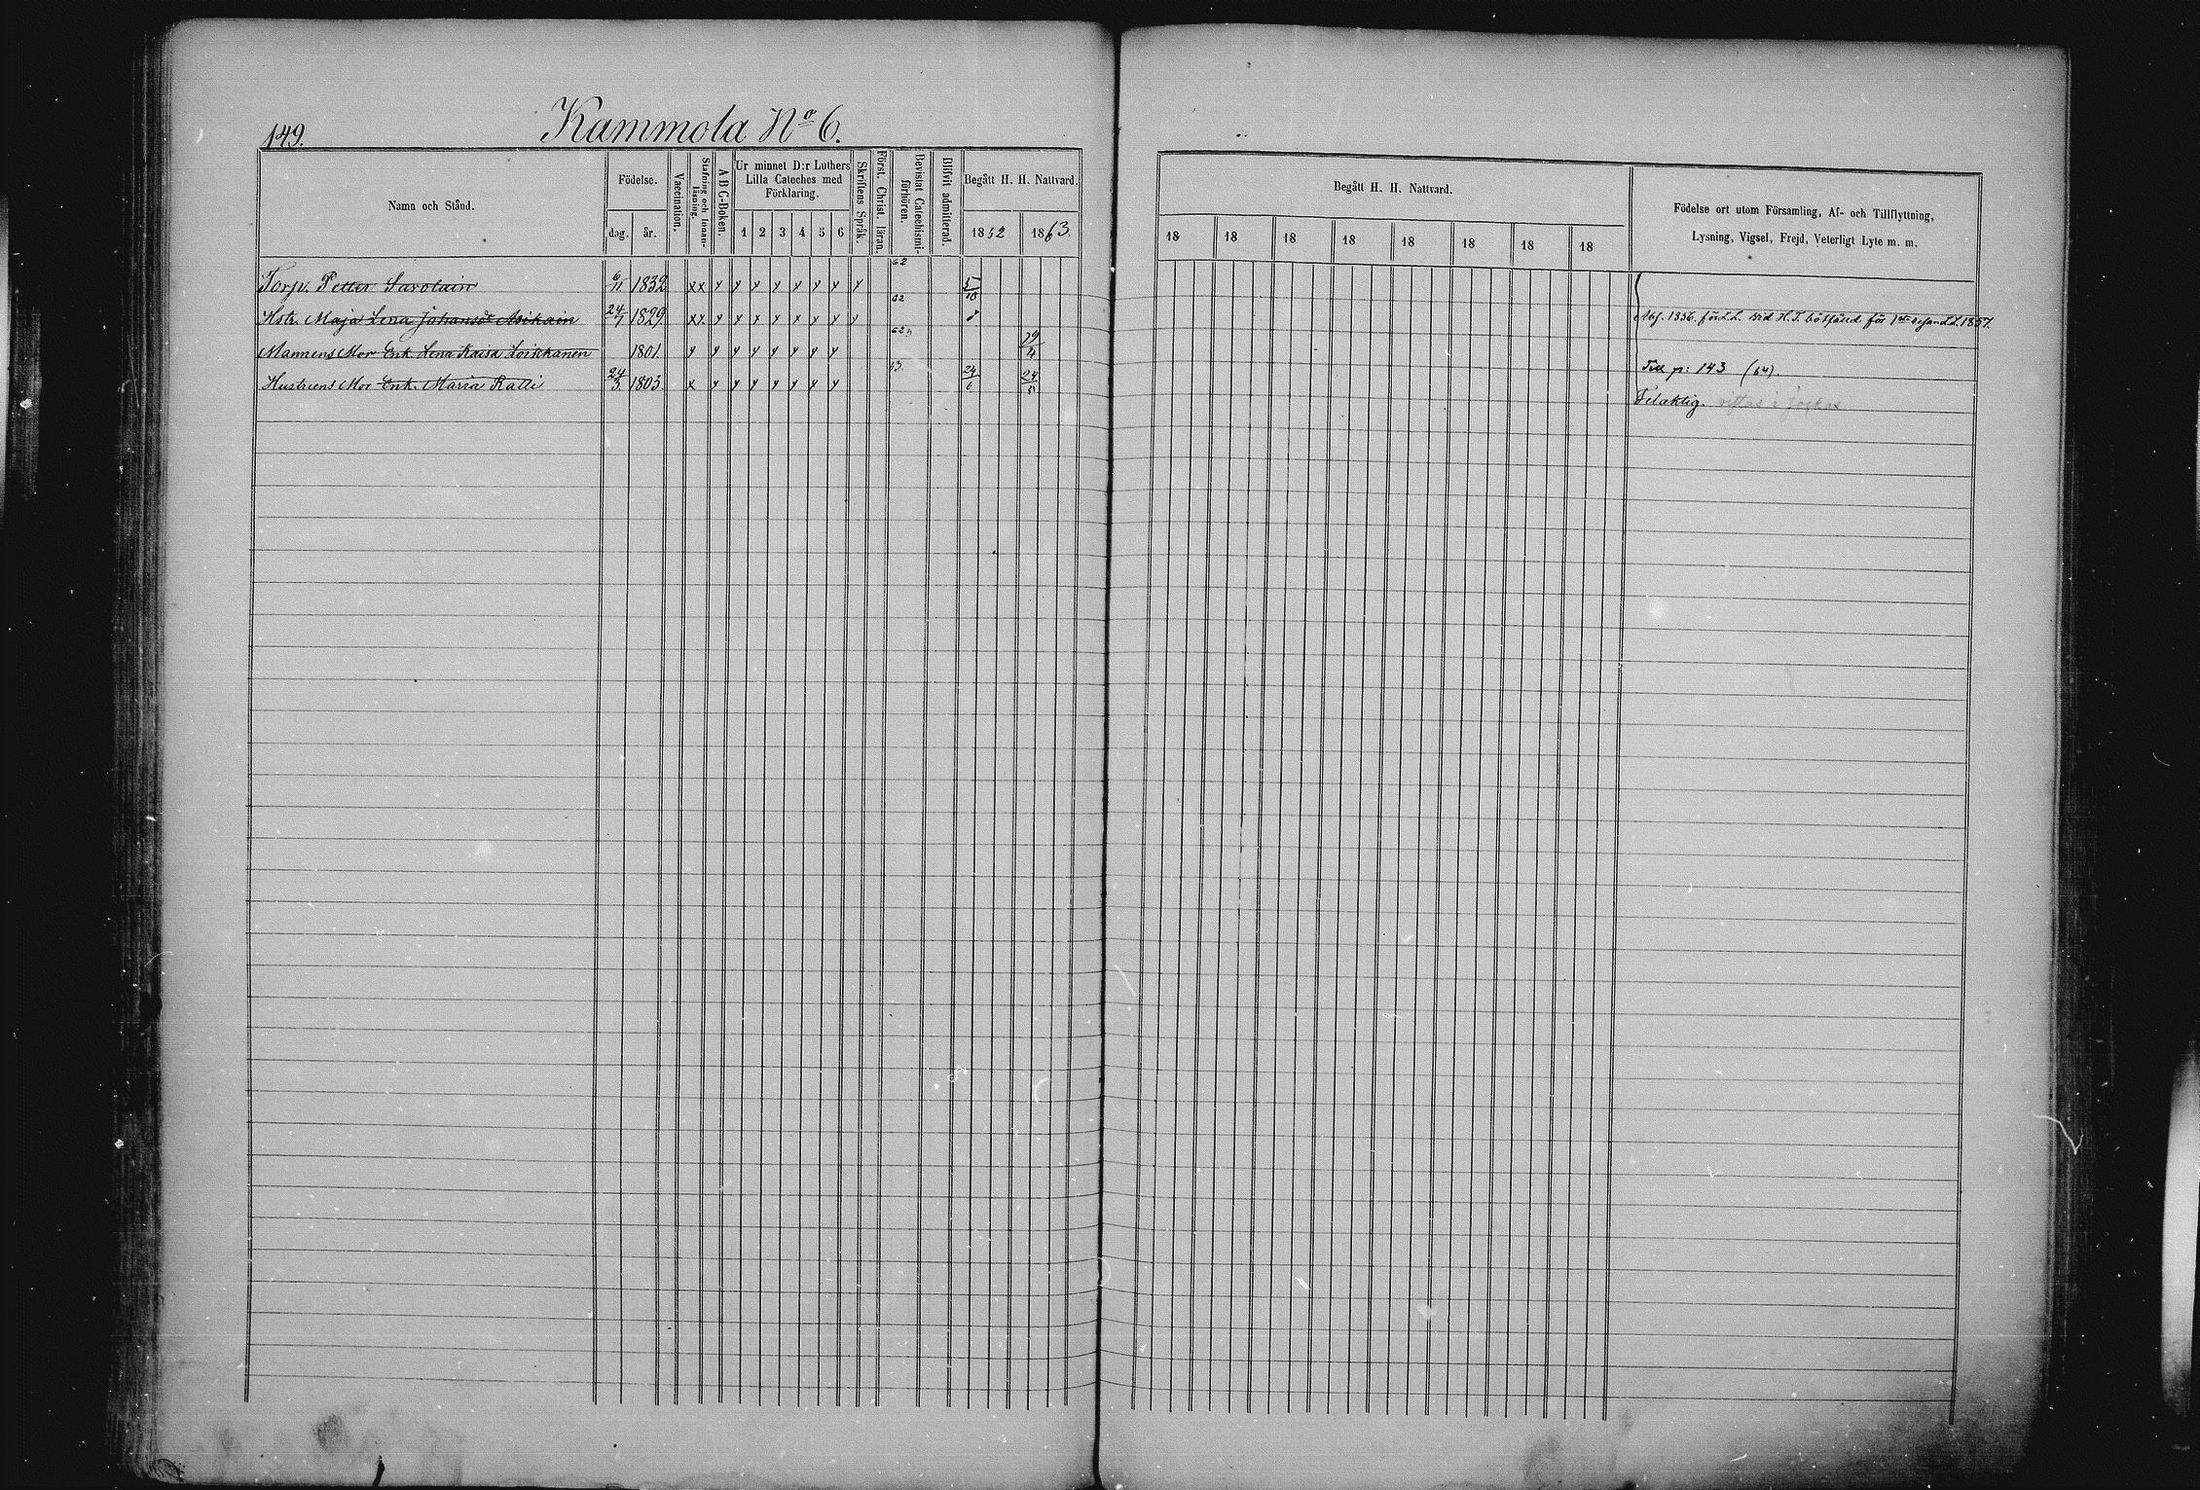 149.
Kammola No 6.
Namn och Stånd.
Födelse.
dag.
år.
Vaccination.
Stafning och Innanläsning.
A B C-Boken.
Ur minnet D:r Luthers
Lilla Cateches med
Förklaring.
1 2 3 4 5 6
Skriftens Språk.
Först. Christ. läran.
Bevistat Catechismi-
förhören.
Blifvit admitterad.
Begått H. H. Nattvard.
1862 1863.
Begått H. H. Nattvard.
18 18 18 18 18 18 18 18
Födelse ort utom Församling, Af- och Tillflyttning,
Lysning, Vigsel, Frejd, Veterligt Lyte m. m.
Torp. Petter Savolain 6/11 1832 xx y y y y y y y y 62 5/10
Hstr. Maja Lena Johansdr Asikain 24/7 1829. xx y y y y x y y y 62
1856. för L.L. vid H.T. bötfäld för 1857.
Mannens Mor Enk. Lena Kaisa Loikkanen 1801. y y y y y y y y 62 19/4
Till p: 143 (64).
Hustruns Mor Enk. Maria Ratti 24/3 1803 x y y y y y y y 63. 24/6 24/5
Felaktig.